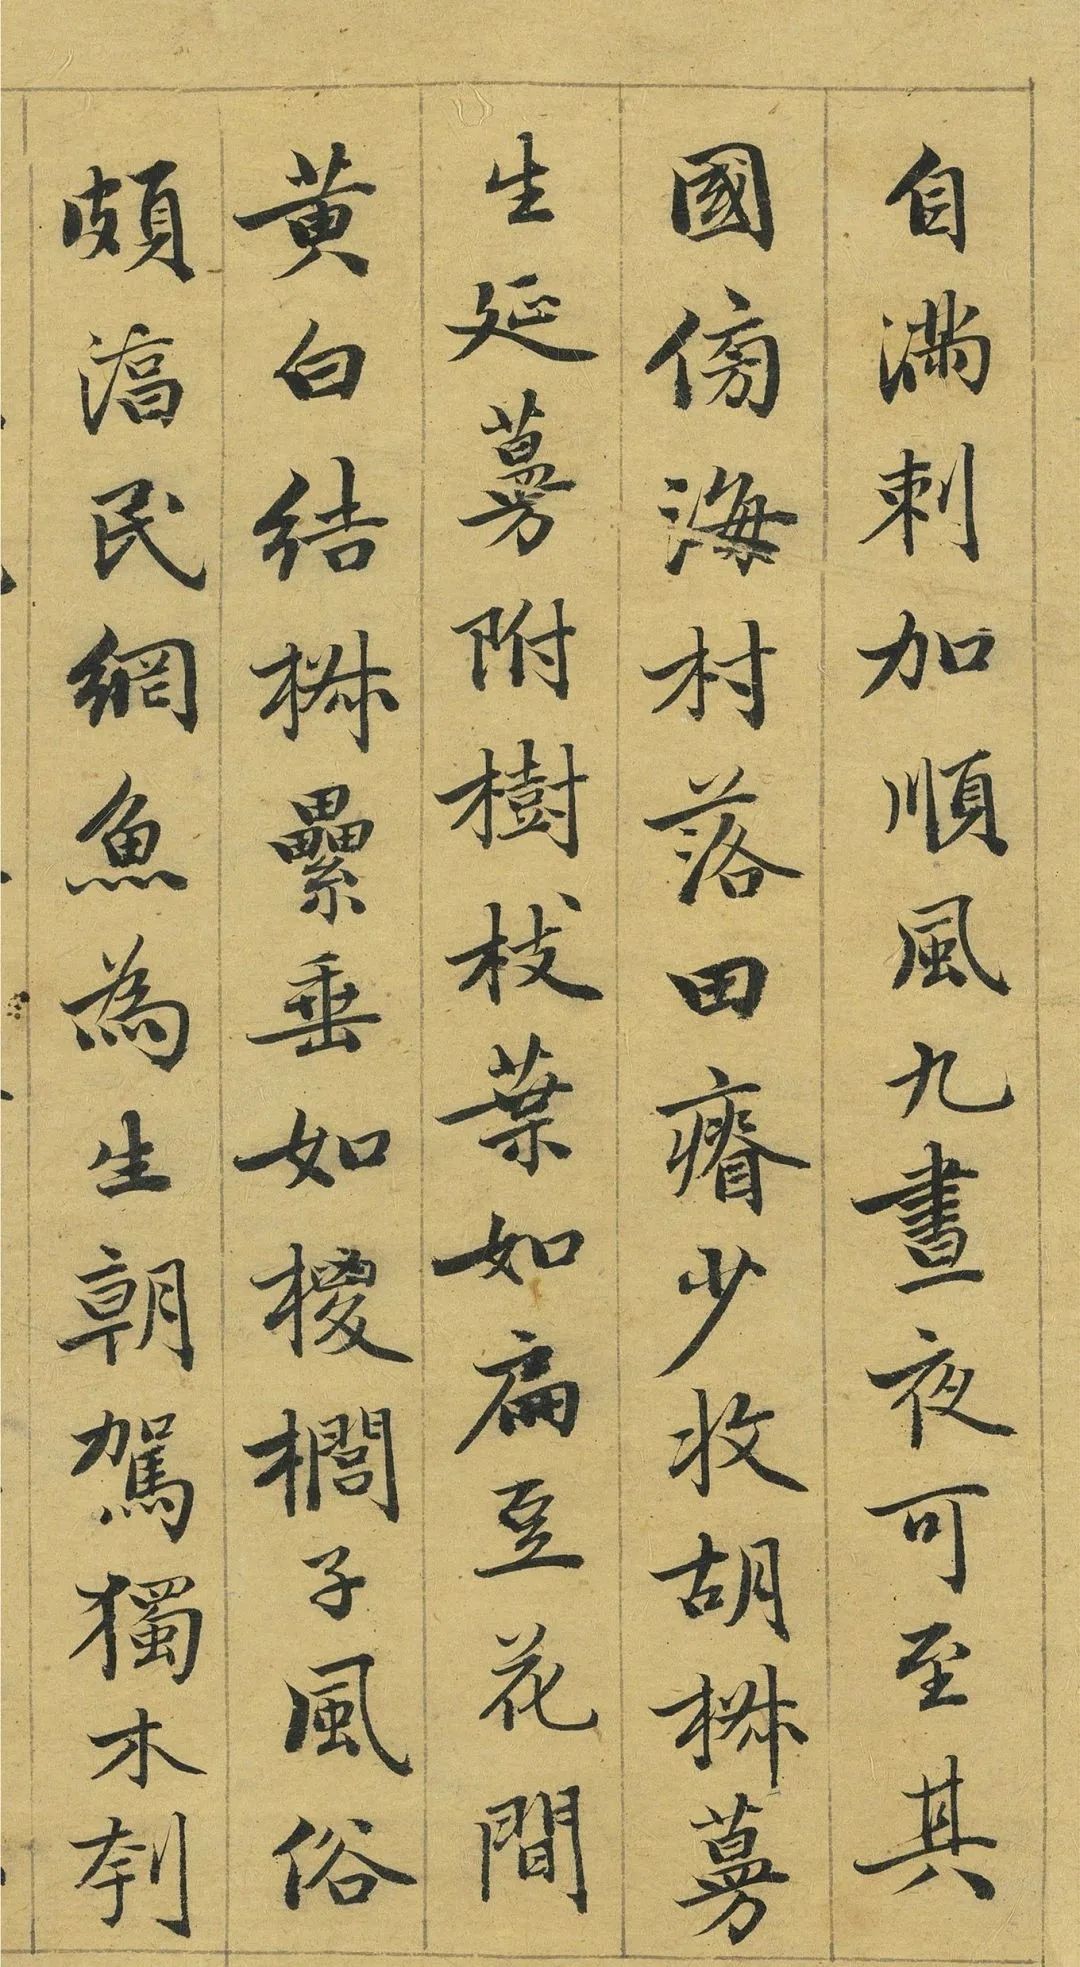 自滿剌加順風九晝夜可至其
國傍海村落田瘠少收胡椒蔓
生延蔓附樹枝葉如扁豆花間
黄白結椒纍垂如椶櫚子風俗
頗淳民網魚為生朝駕獨木刳